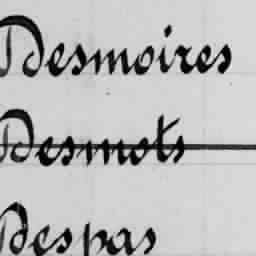 Desmoires
Desmots
Despas